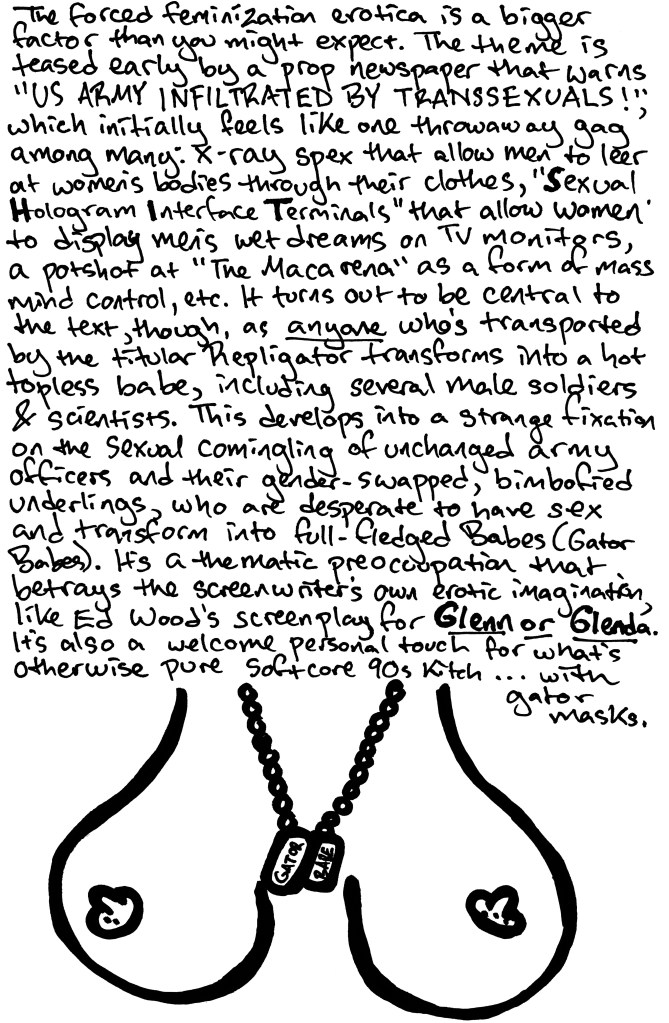 The forced feminization erotica is a bigger
factor than you might expect. The theme is
teased early by a prop newspaper that warns
"US ARMY INFILTRATED BY TRANSSEXUALS!",
which initially feels like one throwaway gag
among many: X-ray spex that allow men to leer
at women's bodies through their clothes, "Sexual
Hologram Interface Terminals" that allow women
to display men's wet dreams on TV monitors,
a potshot at "The Macarena" as a form of mass
mind control, etc. It turns out to be central to
the text, though, as anyone who's transported
by the titular Repligator transforms into a hot
topless babe, including several male soldiers
& scientists. This develops into a strange fixation
on the sexual comingling of unchanged army
officers and their gender-swapped, bimbofied
underlings, who are desperate to have sex
and transform into full-fledged Babes (Gator
Babes). It's a thematic preoccupation that
betrays the screenwriter's own erotic imagination,
like Ed Wood's screenplay for Glenn or Glenda.
It's also a welcome personal touch for what's
otherwise pure softcore 90s kitch ... with
gator
masks.
GATOR
BABE